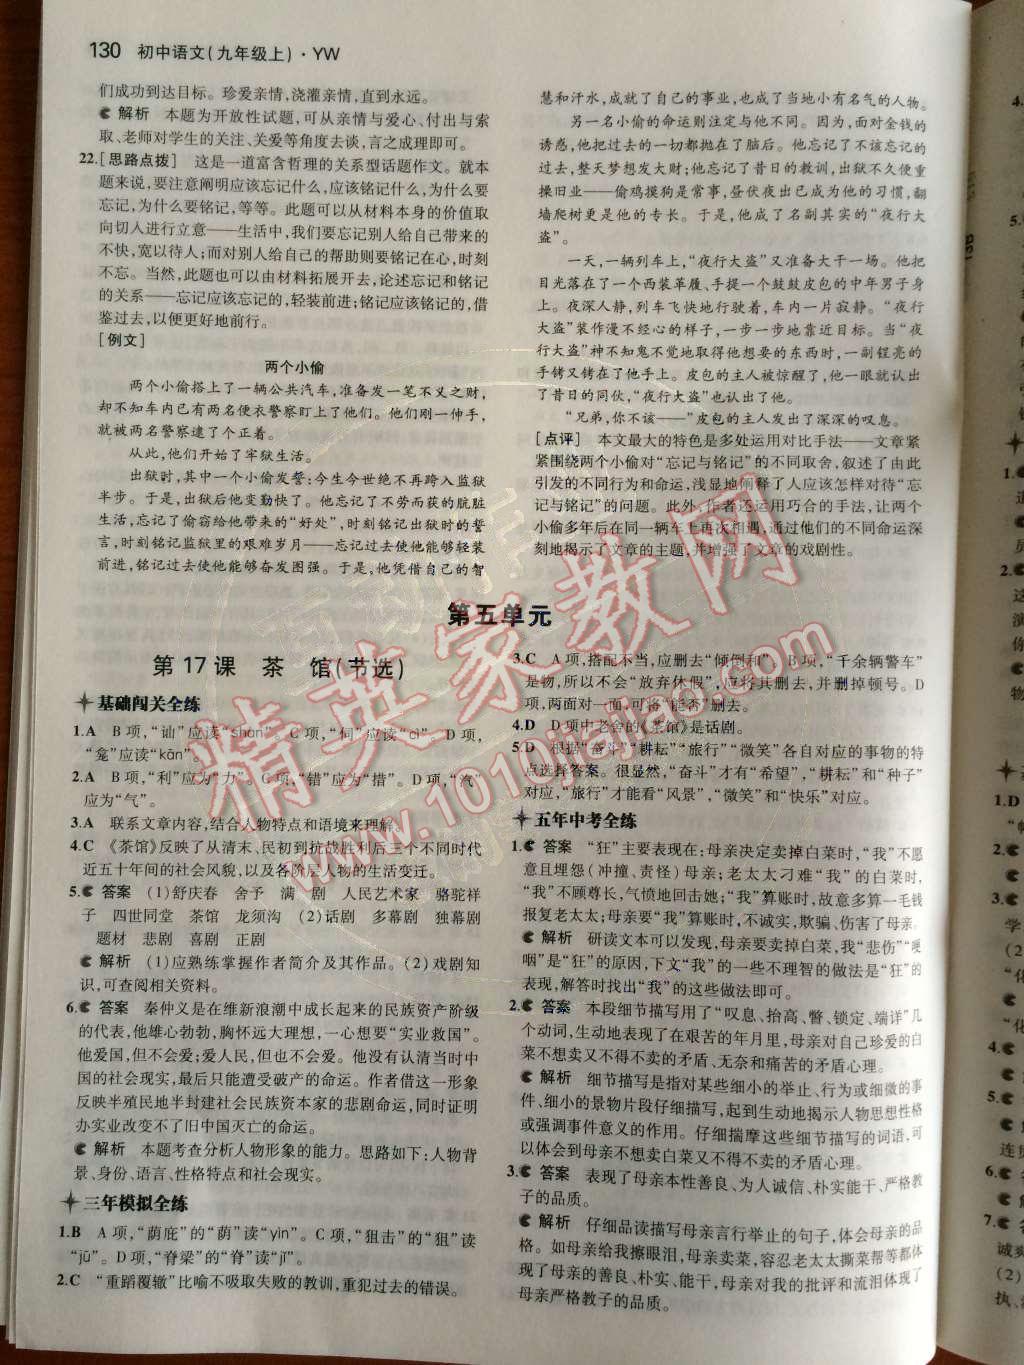 130 初中语文(九年级上)·YW
们成功到达目标。珍爱亲情,浇灌亲情,直到永远。
解析 本题为开放性试题,可从亲情与爱心、付出与索
取、老师对学生的关注、关爱等角度去谈,言之成理即可。
22.[思路点拨] 这是一道富含哲理的关系型话题作文。就本
题来说,要注意阐明应该忘记什么,应该铭记什么,为什么要
忘记,为什么要铭记,等等。此题可以从材料本身的价值取
向切入进行立意——生活中,我们要忘记别人给自己带来的
不快,宽以待人;而对别人给自己的帮助则要铭记在心,时刻
不忘。当然,此题也可以由材料拓展开去,论述忘记和铭记
的关系——忘记应该忘记的,轻装前进;铭记应该铭记的,借
鉴过去,以便更好地前行。
[例文]
两个小偷
两个小偷搭上了一辆公共汽车,准备发一笔不义之财,
却不知车内已有两名便衣警察盯上了他们。他们刚一伸手,
就被两名警察逮了个正着。
从此,他们开始了牢狱生活。
出狱时,其中一个小偷发誓:今生今世绝不再跨入监狱
半步。于是,出狱后他变勤快了。他忘记了不劳而获的肮脏
生活,忘记了偷窃给他带来的“好处”,时刻铭记出狱时的誓
言,时刻铭记监狱里的艰难岁月——忘记过去使他能够轻装
前进,铭记过去使他能够奋发图强。于是,他凭借自己的智
慧和汗水,成就了自己的事业,也成了当地小有名气的人物。
另一名小偷的命运则注定与他不同。因为,面对金钱的
诱惑,他把过去的一切都抛在了脑后。他忘记了不该忘记的
过去,整天梦想发大财;他忘记了昔日的教训,出狱不久便重
操旧业——偷鸡摸狗是常事,昼伏夜出已成为他的习惯,翻
墙爬树更是他的专长。于是,他成了名副其实的“夜行大
盗”。
一天,一辆列车上,“夜行大盗”又准备大干一场。他把
目光落在了一个西装革履、手提一个鼓鼓皮包的中年男子身
上。夜深人静,列车飞快地行驶着,车内一片寂静。“夜行
大盗”装作漫不经心的样子,一步一步地靠近目标。当“夜
行大盗”神不知鬼不觉地取得他想要的东西时,一副锃亮的
手铐又铐在了他手上。皮包的主人被惊醒了,他一眼就认出
了昔日的同伙,“夜行大盗”也认出了他。
“兄弟,你不该——”皮包的主人发出了深深的叹息。
[点评] 本文最大的特色是多处运用对比手法——文章紧
紧围绕两个小偷对“忘记与铭记”的不同取舍,叙述了由此
引发的不同行为和命运,浅显地阐释了人应该怎样对待“忘
记与铭记”的问题。此外,作者还运用巧合的手法,让两个
小偷多年后在同一辆车上再次相遇,通过他们的不同命运深
刻地揭示了文章的主题,并增强了文章的戏剧性。
第五单元
第17课 茶 馆(节选)
基础闯关全练
1.A B项,“讪”应读“shàn”。C项,“伺”应读“cì”。D项,
“龛”应读“kān”。
2.A B项,“利”应为“力”。C项,“错”应为“措”。D项,“汽”
应为“气”。
3.A 联系文章内容,结合人物特点和语境来理解。
4.C 《茶馆》反映了从清末、民初到抗战胜利后三个不同时代
近五十年间的社会风貌,以及各阶层人物的生活变迁。
5. 答案 (1)舒庆春 舍予 满 剧 人民艺术家 骆驼祥
子 四世同堂 茶馆 龙须沟 (2)话剧 多幕剧 独幕剧
题材 悲剧 喜剧 正剧
解析 (1)应熟练掌握作者简介及其作品。(2)戏剧知
识,可查阅相关资料。
6. 答案 秦仲义是在维新浪潮中成长起来的民族资产阶级
的代表,他雄心勃勃,胸怀远大理想,一心想要“实业救国”。
他爱国,但不会爱;爱人民,但也不会爱。他没有认清当时中
国的社会现实,最后只能遭受破产的命运。作者借这一形象
反映半殖民地半封建社会民族资本家的悲剧命运,同时证明
办实业改变不了旧中国灭亡的命运。
解析 本题考查分析人物形象的能力。思路如下:人物背
景、身份、语言、性格特点和社会现实。
三年模拟全练
1.B A项,“荫庇”的“荫”读“yìn”。C项,“狙击”的“狙”读
“jū”。D项,“脊梁”的“脊”读“jǐ”。
2.C “重蹈覆辙”比喻不吸取失败的教训,重犯过去的错误。
3.C A项,搭配不当,应删去“倾倒和”。B项,“千余辆警车”
是物,所以不会“放弃休假”,应将其删去,并删掉顿号。D
项,两面对一面,可将“能否”删去。
4.D D项中老舍的《茶馆》是话剧。
5.D 根据“奋斗”“耕耘”“旅行”“微笑”各自对应的事物的特
点选择答案。很显然,“奋斗”才有“希望”,“耕耘”和“种子”
对应,“旅行”才能看“风景”,“微笑”和“快乐”对应。
五年中考全练
1. 答案 “狂”主要表现在:母亲决定卖掉白菜时,“我”不愿
意且埋怨(冲撞、责怪)母亲;老太太刁难“我”的白菜时,
“我”不顾尊长,气愤地回击她;“我”算账时,故意多算一毛钱
报复老太太;母亲要“我”算账时,不诚实,欺骗、伤害了母亲。
解析 研读文本可以发现,母亲要卖掉白菜,我“悲伤”“哽
咽”是“狂”的原因,下文“我”的一些不理智的做法是“狂”的
表现,解答时找出“我”的这些做法即可。
2. 答案 本段细节描写用了“叹息、抬高、瞥、锁定、端详”几
个动词,生动地表现了在艰苦的年月里,母亲对自己珍爱的白
菜不想卖又不得不卖的矛盾、无奈和痛苦的矛盾心理。
解析 细节描写是指对某些细小的举止、行为或细微的事
件、细小的景物片段仔细描写,起到生动地揭示人物思想性格
或强调事件意义的作用。仔细揣摩这些细节描写的词语,可
以体会到母亲不想卖白菜又不得不卖的矛盾心理。
3. 答案 表现了母亲本性善良、为人诚信、朴实能干、严格教
子的品质。
解析 仔细品读描写母亲言行举止的句子,体会母亲的品
格。如母亲给我擦眼泪,母亲卖菜,容忍老太太撕菜帮等都体
现了母亲的善良、朴实、能干,母亲对我的批评和流泪体现了
母亲严格教子的品质。
精英家教网
www.1010jiajiao.com